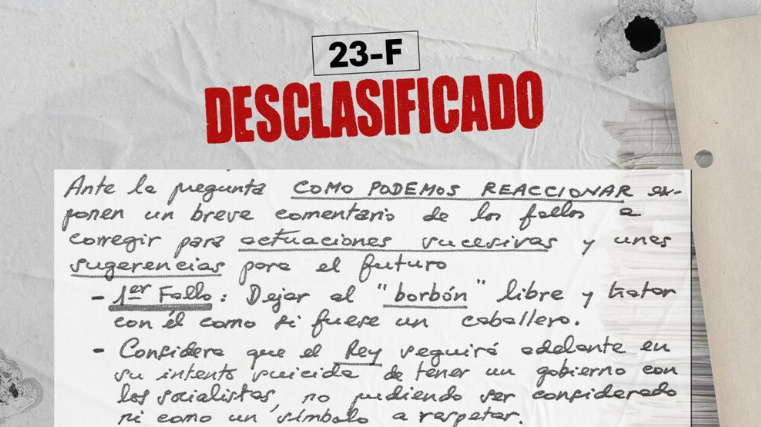 23-F
DESCLASIFICADO
Ante la pregunta COMO PODEMOS REACCIONAR ex-
ponen un breve comentario de los fallos a
corregir para actuaciones sucesivas y unas
sugerencias para el futuro
- 1er Fallo: Dejar al "borbón" libre y tratar
con él como si fuese un caballero.
- Considera que el Rey seguirá adelante en
su intento suicida de tener un gobierno con
los socialistas, no pudiendo ser considerado
ni como un símbolo a respetar.